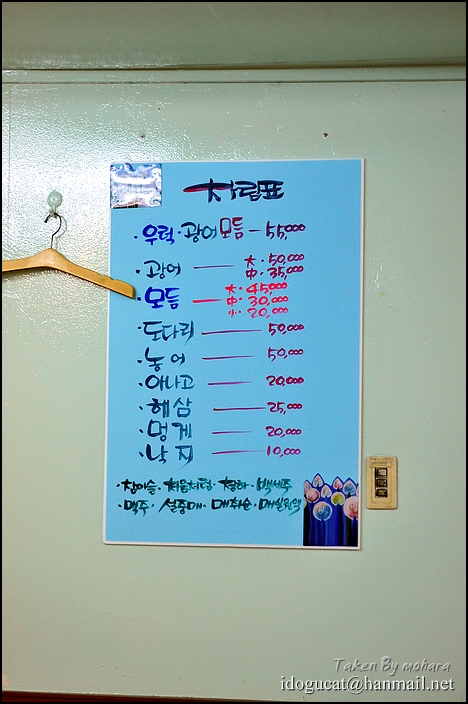 차림표
· 우럭 · 광어 모듬 - 55,000
· 광어 — 大 · 50,000
中 · 35,000
· 모듬 — 大 · 45,000
中 · 30,000
小 · 20,000
· 도다리 — 50,000
· 농어 — 50,000
· 아나고 — 20,000
· 해삼 — 25,000
· 멍게 — 20,000
· 낙지 — 10,000
· 참이슬 · 처음처럼 · 청하 · 백세주
· 맥주 · 설중매 · 매취순 · 매실원액
Taken By mohara
idogucat@hanmail.net